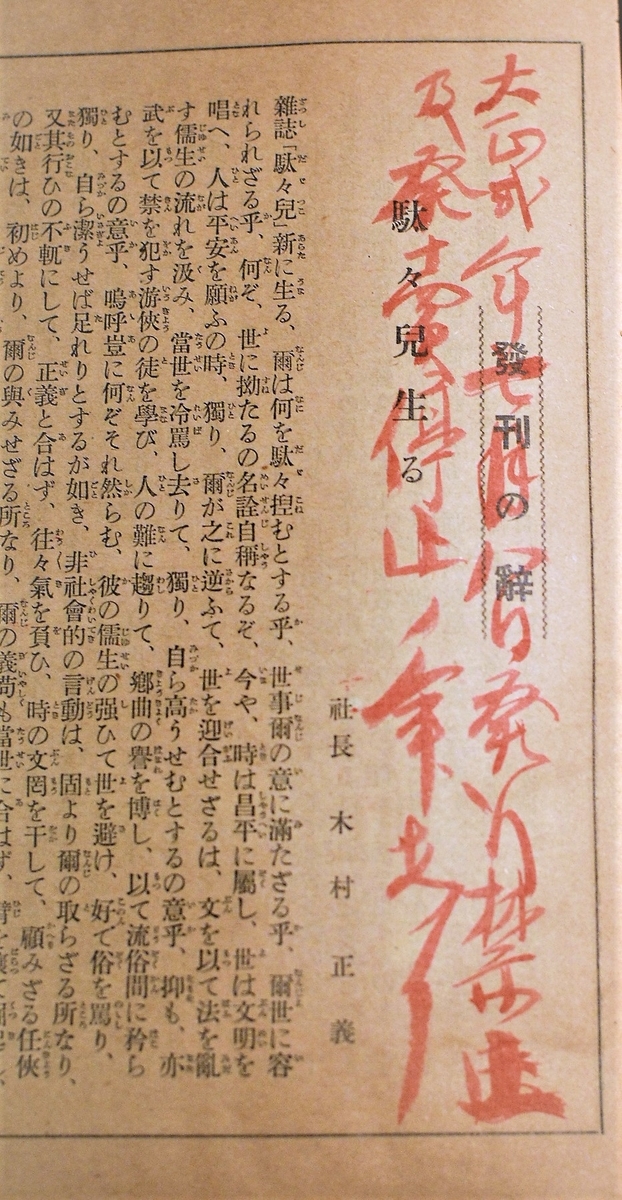 大正弐年七月八日発行禁止
及発売停止ノ命
發刊の辭
駄々兒生る
社長 木村正義
雜誌「駄々兒」新に生る、爾は何を駄々捏むとする乎、世事爾の意に滿たざる乎、爾世に容
れられざる乎、何ぞ、世に拗たるの名詮自稱なるぞ、今や、時は昌平に屬し、世は文明を
唱へ、人は平安を願ふの時、獨り、爾が之に逆ふて、世を迎合せざるは、文を以て法を亂
す儒生の流れを汲み、當世を冷罵し去りて、獨り、自ら高うせむとするの意乎、抑も、亦
武を以て禁を犯す游俠の徒を學び、人の難に趨りて、鄕曲の譽を博し、以て流俗間に矜ら
むとするの意乎、嗚呼豈に何ぞそれ然らむ、彼の儒生の强ひて世を避け、好で俗を罵り、
獨り、自ら潔うせば足れりとするが如き、非社會的の言動は、固より爾の取らざる所なり、
又其行ひの不軌にして、正義と合はず、往々氣を負ひ、時の文罔を干して、顧みざる任俠
の如きは、初めより、爾の與みせざる所なり、爾の義苟も當世に合はず、